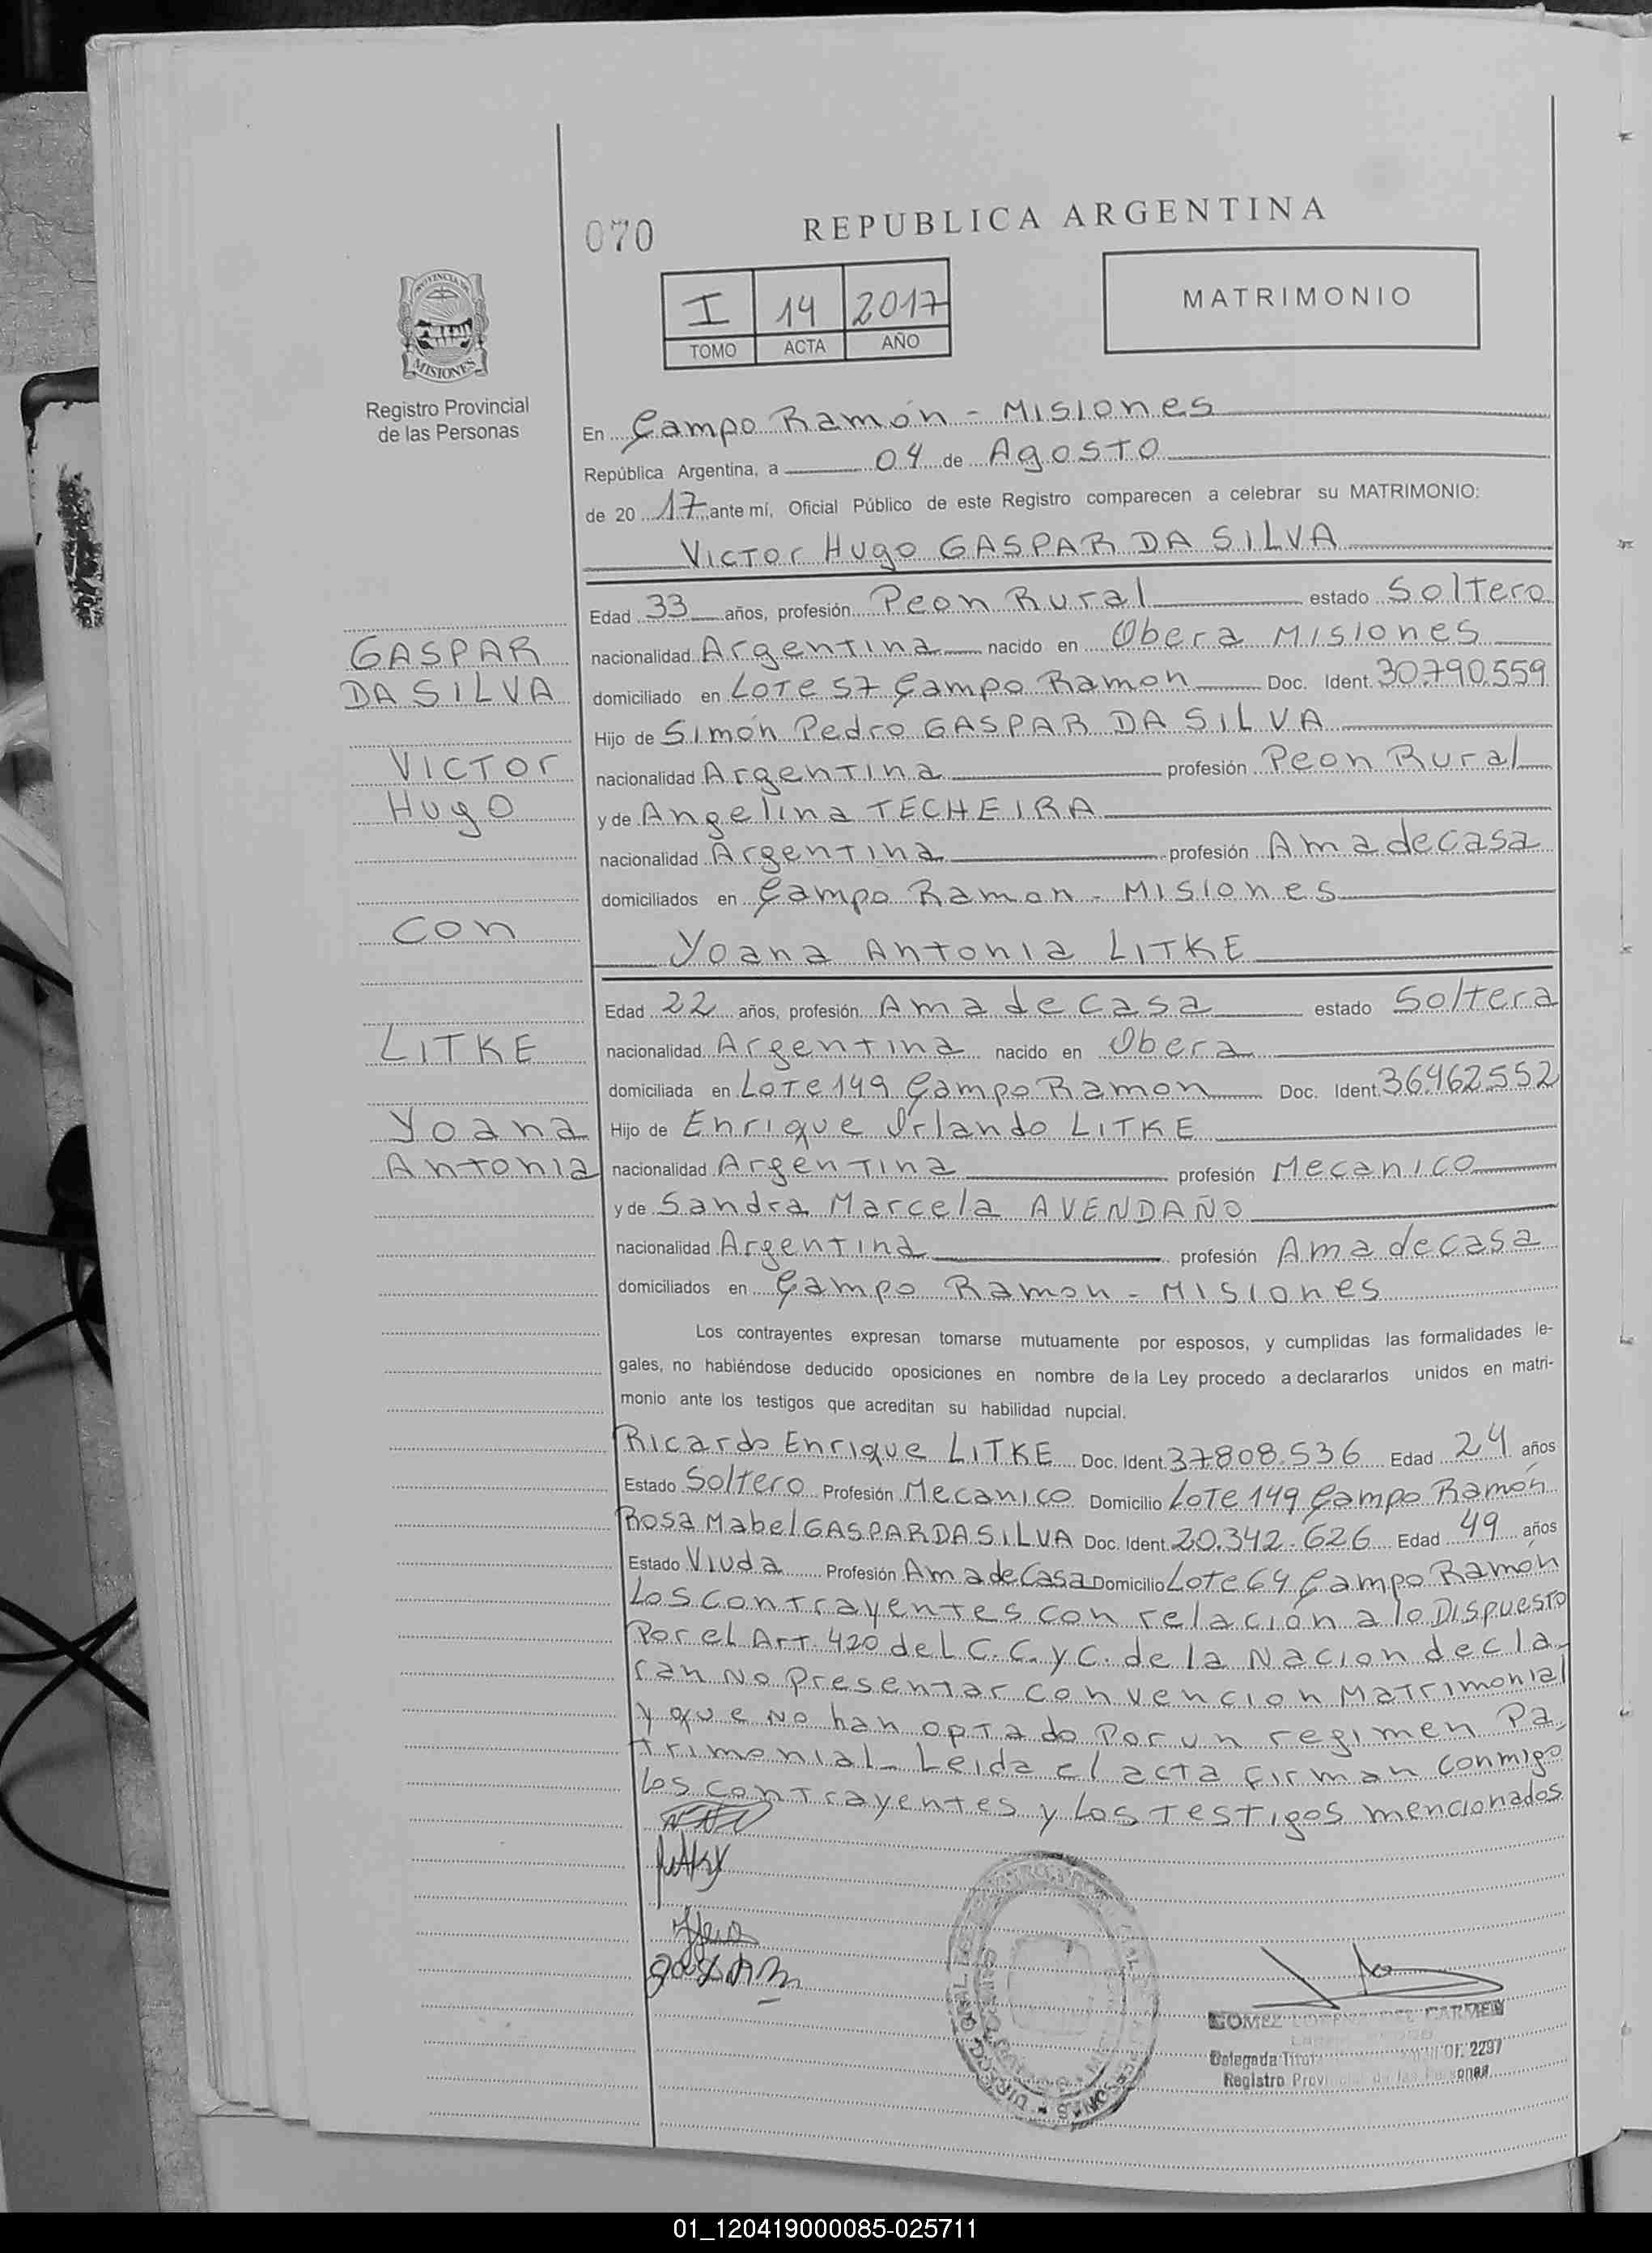 070
REPUBLICA ARGENTINA
I 14 2017
TOMO ACTA AÑO
MATRIMONIO
PROVINCIA DE
MISIONES
Registro Provincial
de las Personas
En Campo Ramón - Misiones
República Argentina, a 04 de Agosto
de 20 17 ante mí, Oficial Público de este Registro comparecen a celebrar su MATRIMONIO:
Victor Hugo GASPAR DA SILVA
Edad 33 años, profesión Peon Rural estado Soltero
nacionalidad Argentina nacido en Obera Misiones
domiciliado en Lote 57 Campo Ramon Doc. Ident. 30.790.559
Hijo de Simón Pedro GASPAR DA SILVA
nacionalidad Argentina profesión Peon Rural
y de Angelina TECHEIRA
nacionalidad Argentina profesión Ama de casa
domiciliados en Campo Ramon - Misiones
Yoana Antonia LITKE
Edad 22 años, profesión Ama de casa estado Soltera
nacionalidad Argentina nacido en Obera
domiciliada en Lote 149 Campo Ramon Doc. Ident. 36.462.552
Hijo de Enrique Orlando LITKE
nacionalidad Argentina profesión Mecanico
y de Sandra Marcela AVENDAÑO
nacionalidad Argentina profesión Ama de casa
domiciliados en Campo Ramon - Misiones
GASPAR
DA SILVA
Victor
Hugo
con
LITKE
Yoana
Antonia
Los contrayentes expresan tomarse mutuamente por esposos, y cumplidas las formalidades le-
gales, no habiéndose deducido oposiciones en nombre de la Ley procedo a declararlos unidos en matri-
monio ante los testigos que acreditan su habilidad nupcial.
Ricardo Enrique LITKE Doc. Ident. 37808.536 Edad 24 años
Estado Soltero Profesión Mecanico Domicilio Lote 149 Campo Ramón
Rosa Mabel GASPAR DA SILVA Doc. Ident. 20.342.626 Edad 49 años
Estado Viuda Profesión Ama de Casa Domicilio Lote 64 Campo Ramón
Los contrayentes con relación a lo Dispuesto
Por el Art. 420 del C.C. y C. de la Nacion decla-
ran No Presentar convencion Matrimonial
y que No han optado Por un regimen Pa-
trimonial - Leida el acta firman conmigo
los contrayentes y los testigos mencionados
GOMEZ DEL CARMEN
Delegada Titular 2297
Registro Provincial de las Personas
01_120419000085-025711